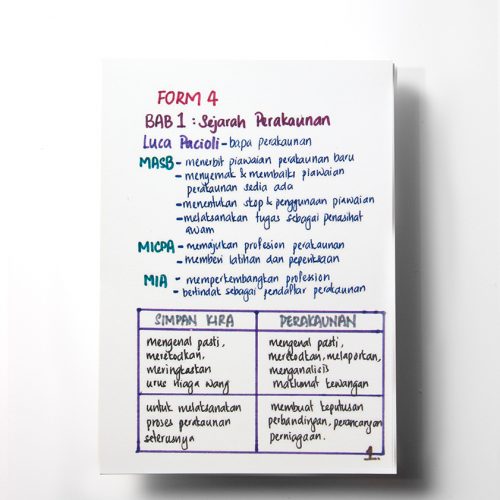 FORM 4
BAB 1 : Sejarah Perakaunan
Luca Pacioli - bapa perakaunan
MASB - menerbit piawaian perakaunan baru
- menyemak & membaiki piawaian
perakaunan sedia ada
- menentukan skop & penggunaan piawaian
- melaksanakan tugas sebagai penasihat
awam
MICPA - memajukan profesion perakaunan
- memberi latihan dan peperiksaan
MIA - memperkembangkan profession
- bertindak sebagai pendaftar perakaunan
SIMPAN KIRA
mengenal pasti,
merekodkan,
meringkaskan
urus niaga wang
untuk melaksanakan
proses perakaunan
seterusnya
PERAKAUNAN
mengenal pasti,
merekodkan, melaporkan,
menganalisis
maklumat kewangan
membuat keputusan
perbandingan, perancangan
perniagaan.
1.